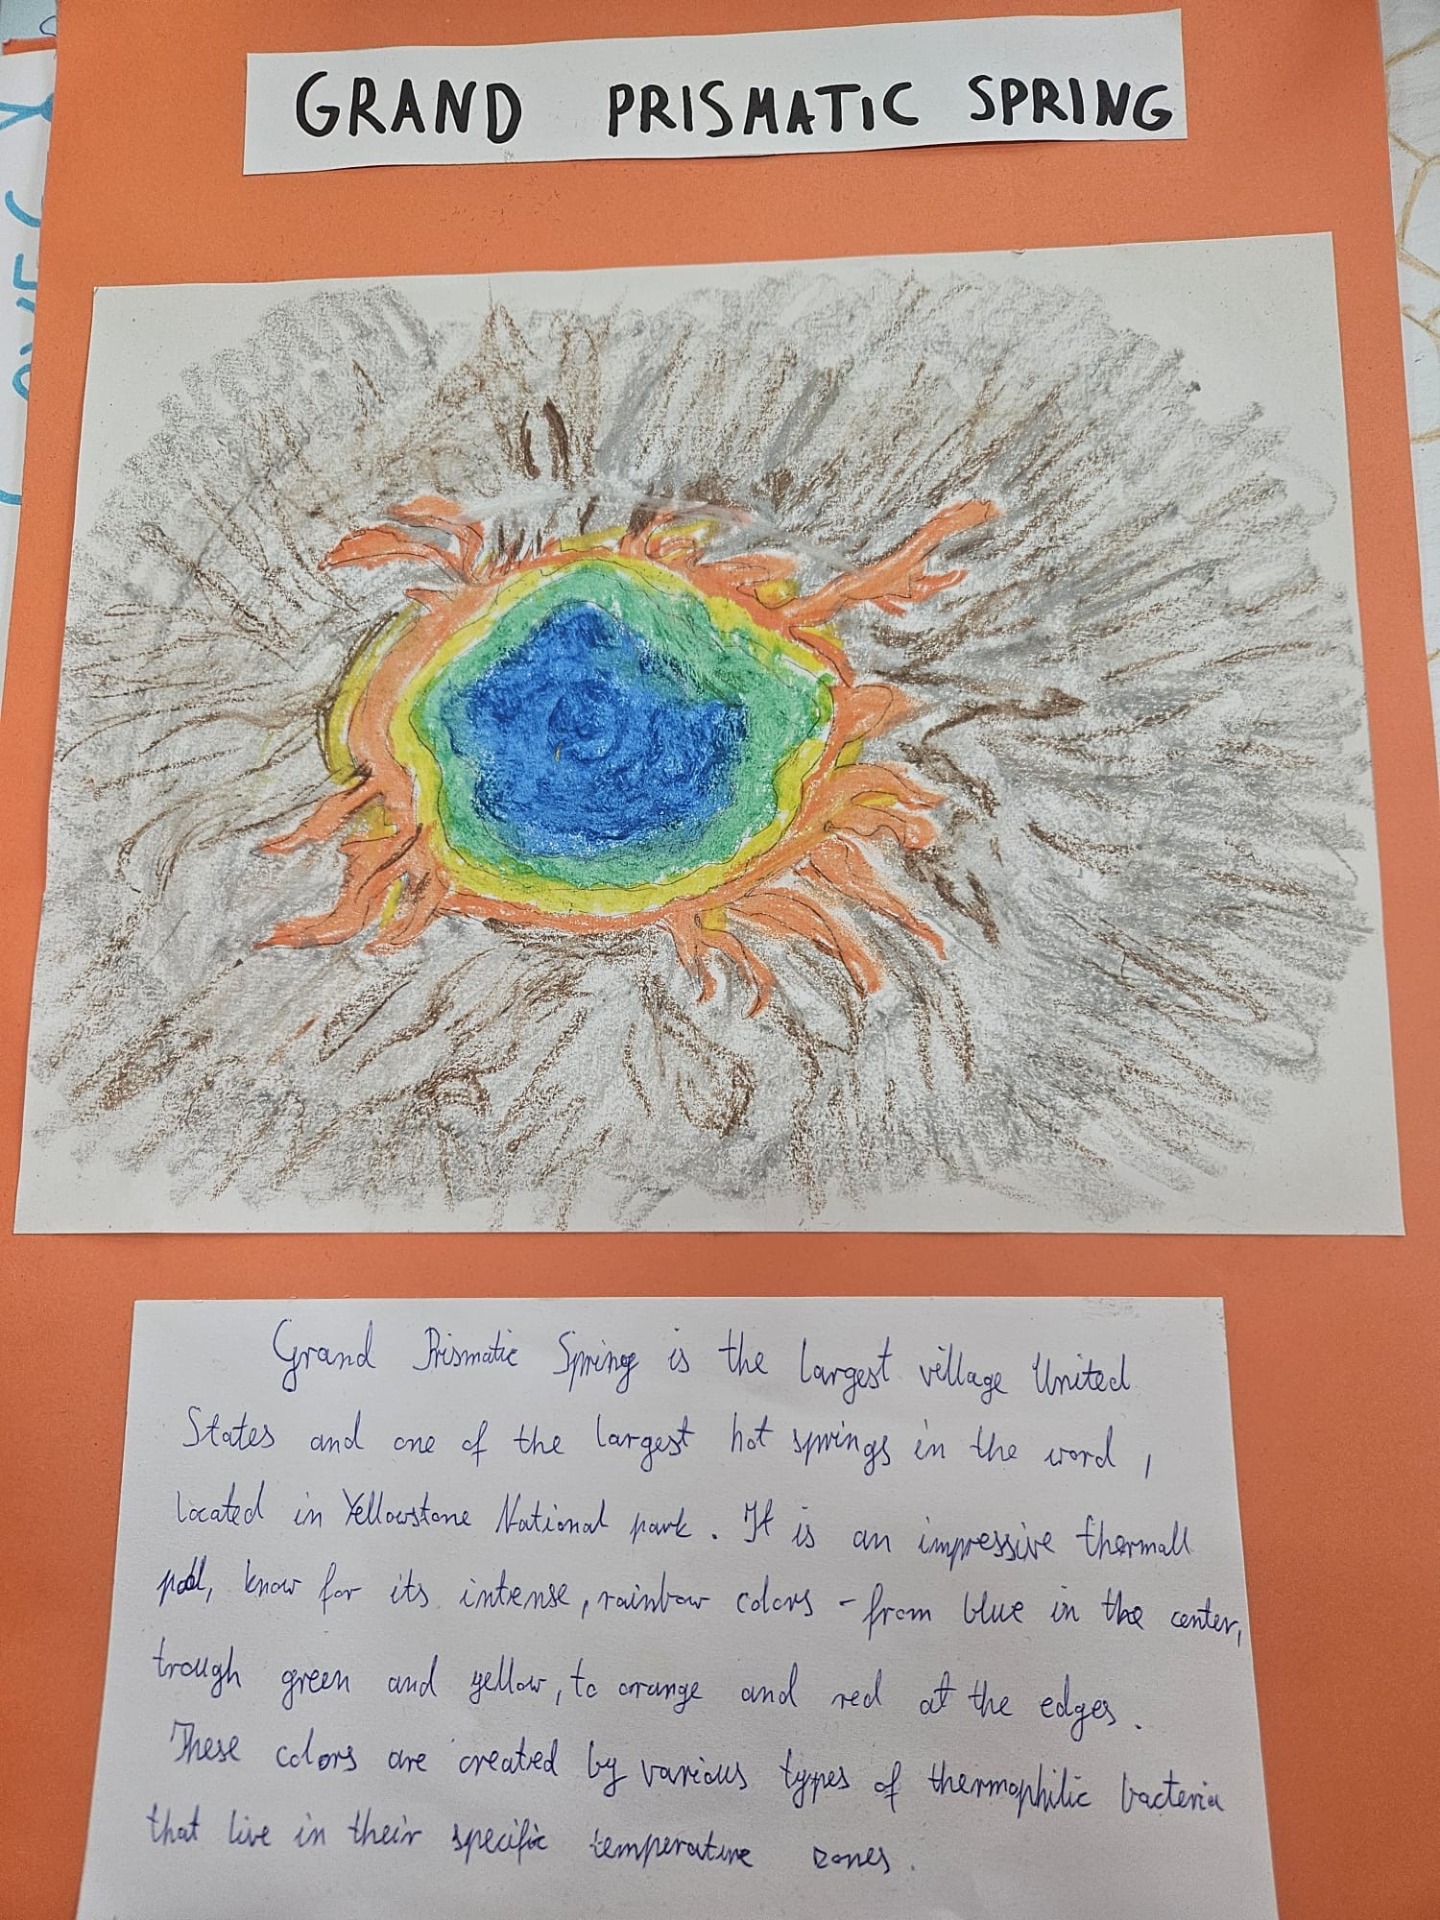 GRAND PRISMATIC SPRING
Grand Prismatic Spring is the largest village United
States and one of the largest hot springs in the word,
located in Yellowstone National park. It is an impressive thermall
pool, know for its intense, rainbow colors - from blue in the center,
trough green and yellow, to orange and red at the edges.
These colors are created by various types of thermophilic bacteria
that live in their specific temperature zones.